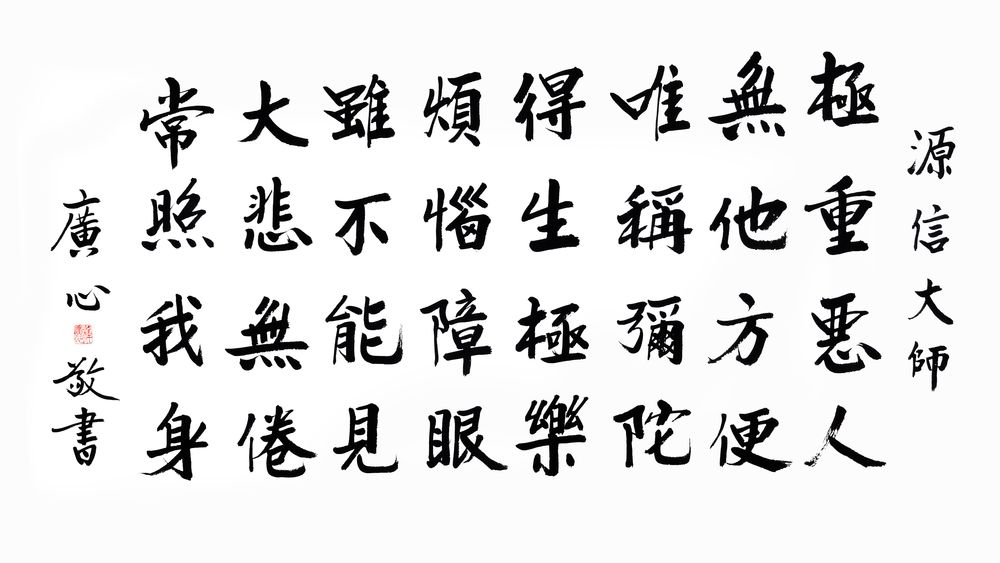 源信大師
極重惡人
無他方便
唯稱彌陀
得生極樂
煩惱障眼
雖不能見
大悲無倦
常照我身
廣心
敬書